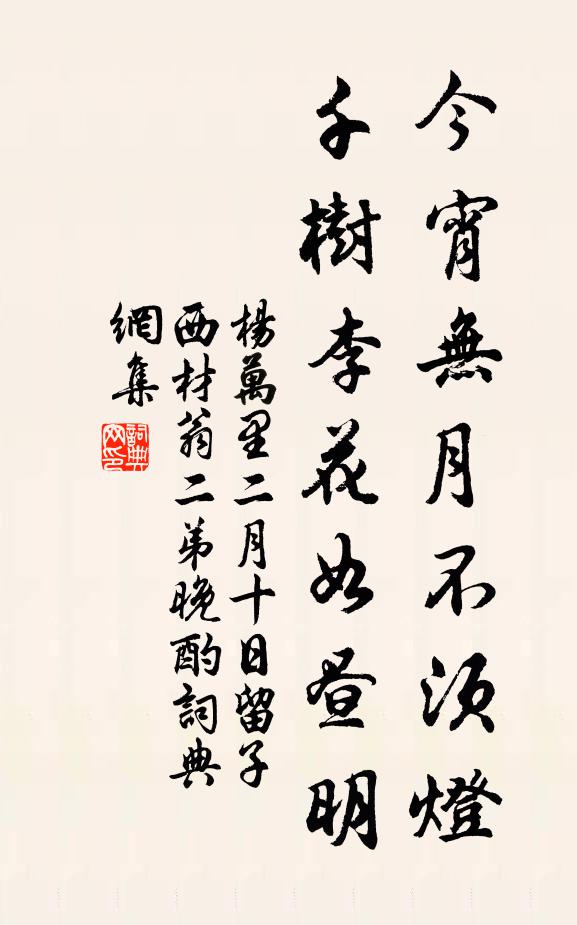 今宵無月不須燈
千樹李花如晝明
楊萬里二月十日留子
西材翁二弟晚酌詞典
網集
詞典
网印